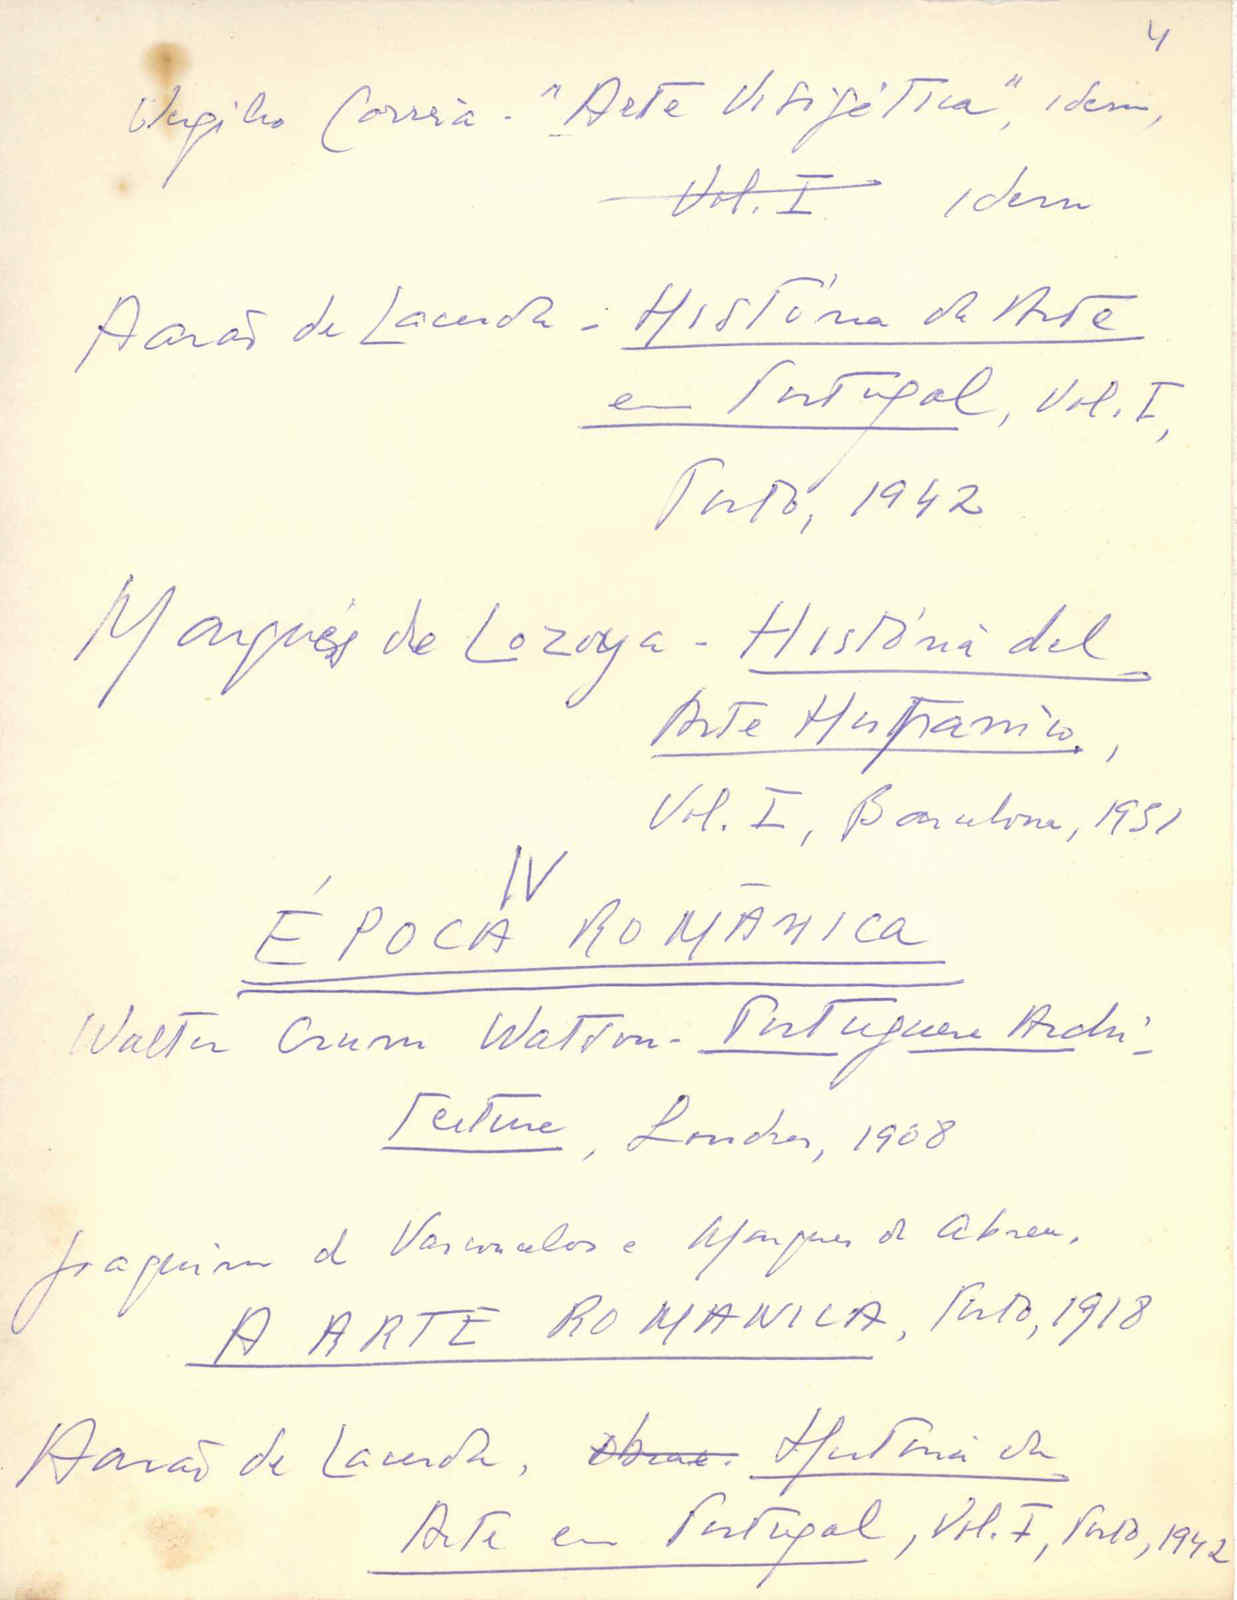 4
Vergilio Correia - "Arte Visigótica", idem,
Vol. I idem
Aarão de Lacerda - História da Arte
em Portugal, Vol. I,
Porto, 1942
Marqués de Lozoya - História del
Arte Hispanico,
Vol. I, Barcelona, 1931
IV
ÉPOCA ROMÂNICA
Walter Crum Watson - Portuguese Archi-
tecture, Londres, 1908
Joaquim de Vasconcelos e Marques de Abreu,
A ARTE ROMANICA, Porto, 1918
Aarão de Lacerda, História da
Arte em Portugal, Vol. I, Porto, 1942